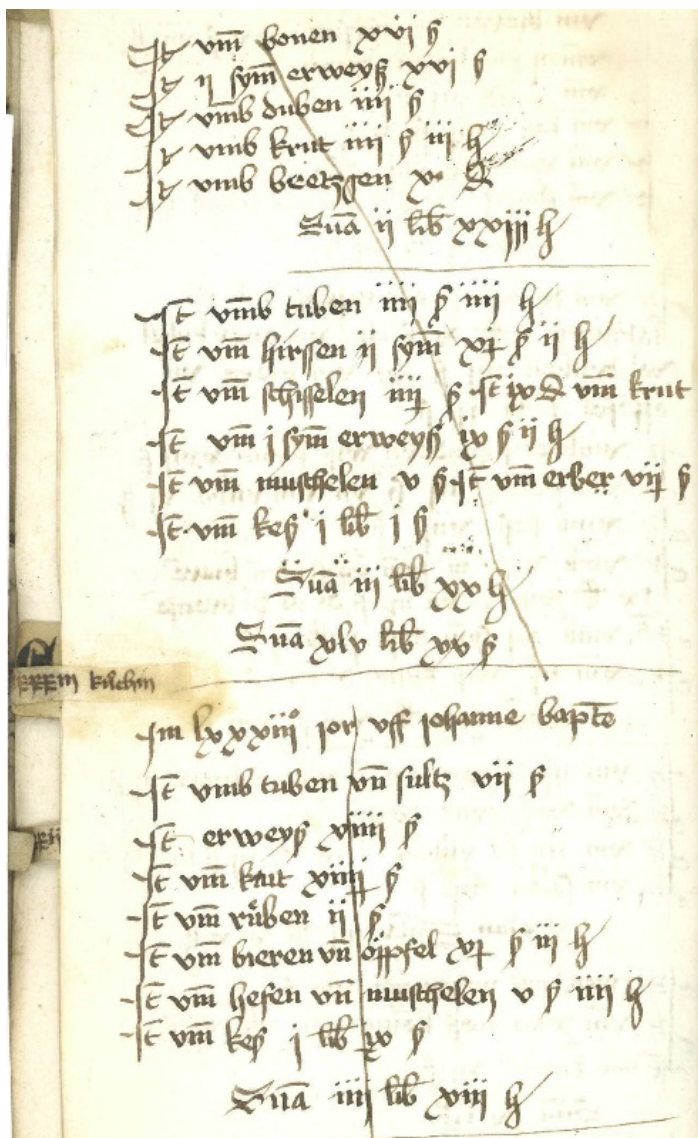 It vmb bonen xvi ß
It ii sym̄ erweyß xvi ß
It vmb duben iiii ß
It vmb krut iiii ß iii h
It vmb beetzßen x d
Sūa ii lib xxiii h
It vmb tuben iiii ß iiii h
It vm̄ hirssen ii sym̄ xi ß ii h
It vm̄ schisselen iiii ß It ix d vm̄ krut
It vm̄ i sym̄ erweyß ix ß ii h
It vm̄ muschelen v ß It vm̄ erber vii ß
It vm̄ keß i lib i ß
Sūa iii lib xx h
Sūa xlv lib xv ß
kuchin
Im lxxxiii° ior vff iohanne bapte
It vmb tuben vn̄ sultz vii ß
It erweyß xviiii ß
It vm̄ krut xviiii ß
It vm̄ růben ii ß
It vm̄ bieren vn̄ öppfel xi ß iii h
It vm̄ hefen vn̄ muschelen v ß iiii h
It vm̄ keß i lib ix ß
Sūa iiii lib xviii h